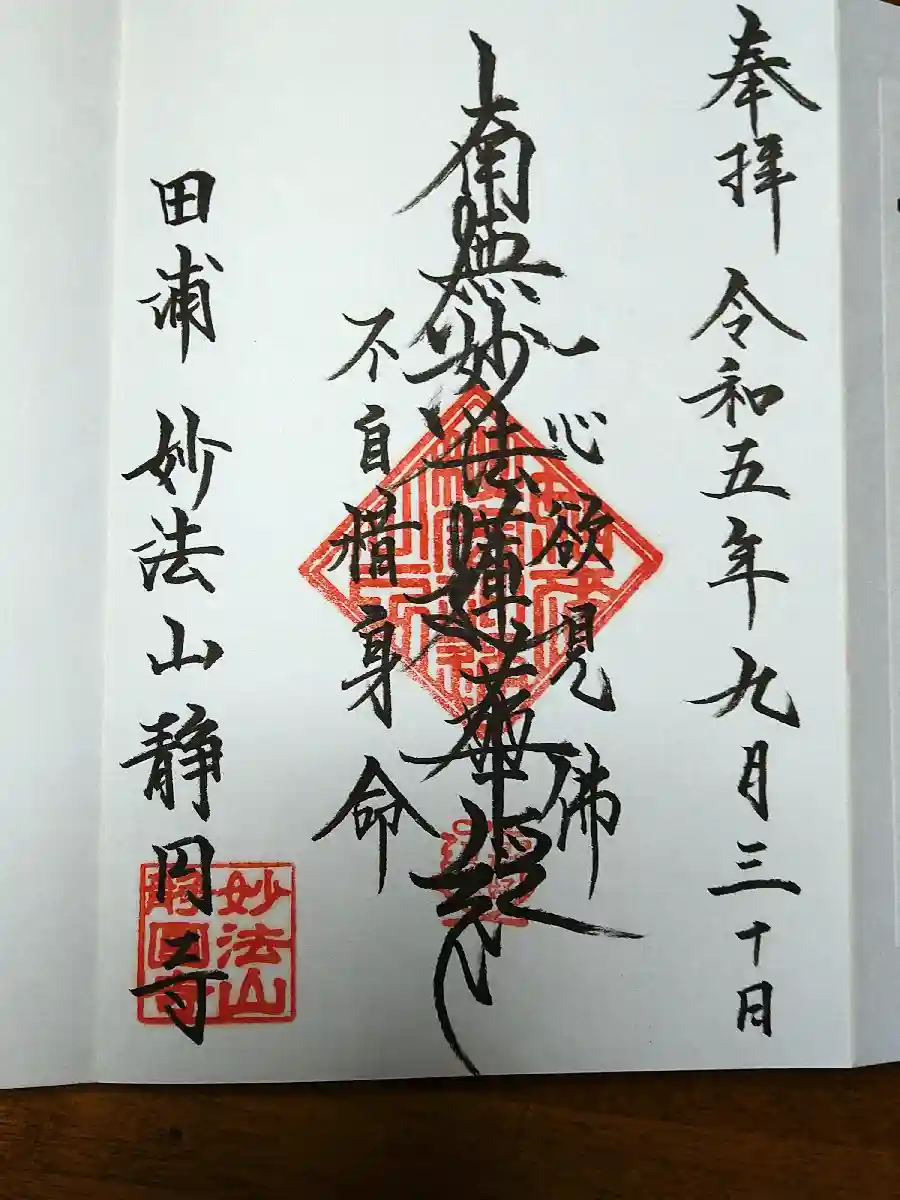 奉拝 令和五年九月三十日
一心欲見佛
南無妙法蓮華経
不自惜身命
田浦 妙法山静円寺
妙法山
静圓寺